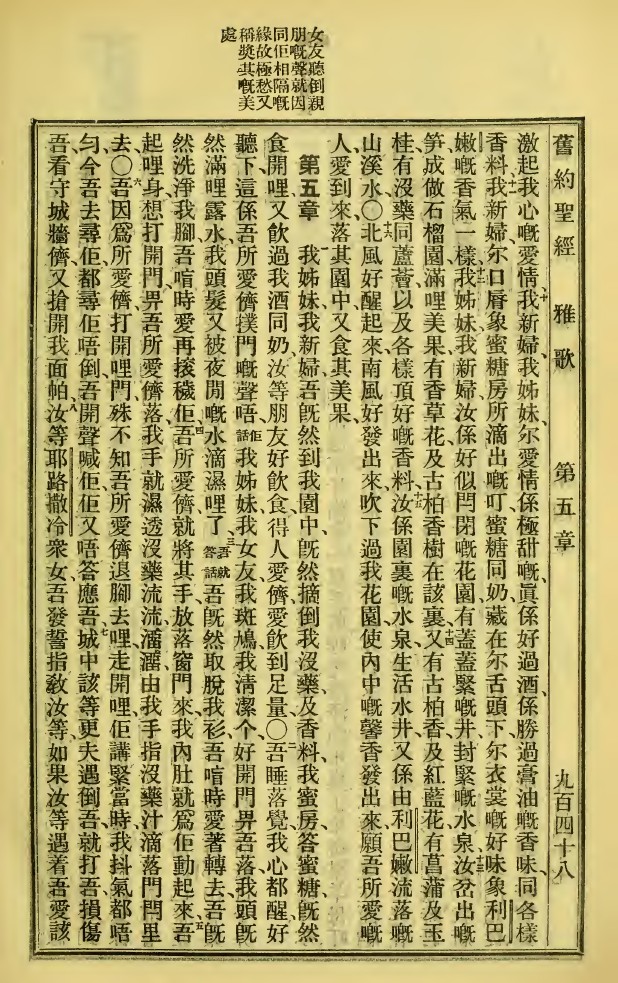 女友聽倒親
朋嘅聲就因
同佢相隔嘅
緣故極愁又
稱奬其嘅美
處
舊約聖經 雅歌 第五章 九百四十八
激起我心嘅愛情、十我新婦、我姊妹、尔愛情係極甜嘅、眞係好過酒、係勝過膏油嘅香味、同各樣
香料、十一我新婦、尔口唇象蜜糖房所滴出嘅叮、蜜糖同奶、藏在尔舌頭下、尔衣裳嘅好味、象利巴
嫩嘅香氣一樣、十二我姊妹、我新婦、汝係好似閂閉嘅花園、有蓋蓋緊嘅井、封緊嘅水泉、十三汝岔出嘅
笋、成做石榴園、滿哩美果、有香草花、及古柏香樹在該裏、十四又有古柏香、及紅藍花、有菖蒲及玉
桂、有沒藥同蘆薈、以及各樣頂好嘅香料、十五汝係園裏嘅水泉、生活水井、又係由利巴嫩流落嘅
山溪水、〇十六北風好醒起來、南風好發出來、吹下過我花園、使內中嘅馨香發出來、願吾所愛嘅
人愛到來、落其園中、又食其美果、
第五章 一我姊妹、我新婦、吾旣然到我園中、旣然摘倒我沒藥及香料、我蜜房答蜜糖、旣然
食開哩、又飲過我酒同奶、汝等朋友好飲食、得人愛儕、愛飲到足量、〇二吾睡落覺、我心都醒、好
聽下、這係吾所愛儕、撲門嘅聲唔、佢話我姊妹、我女友、我斑鳩、我清潔个、好開門畀吾落、我頭旣
然滿哩露水、我頭髮又被夜間嘅水滴濕哩了、三吾就答話吾旣然取脫我衫、吾㖞時愛著轉去、吾旣
然洗淨我腳、吾㖞時愛再挨穢佢、四吾所愛儕、就將其手放落窗門來、我內肚就爲佢動起來、五吾
起哩身、想打開門、畀吾所愛儕落、我手就濕透沒藥、流流瀋瀋、由我手指沒藥汁滴落門閂里
去、〇六吾因爲所愛儕打開哩門、殊不知吾所愛儕、退腳去哩、走開哩、佢講緊當時、我抖氣都唔
勻、今吾去尋佢、都尋佢唔倒、吾開聲喊佢、佢又唔答應吾、七城中該等更夫遇倒吾、就打吾損傷
吾、看守城牆儕、又搶開我面帕、八汝等耶路撒冷衆女、吾發誓指教汝等、如果汝等遇着吾愛該